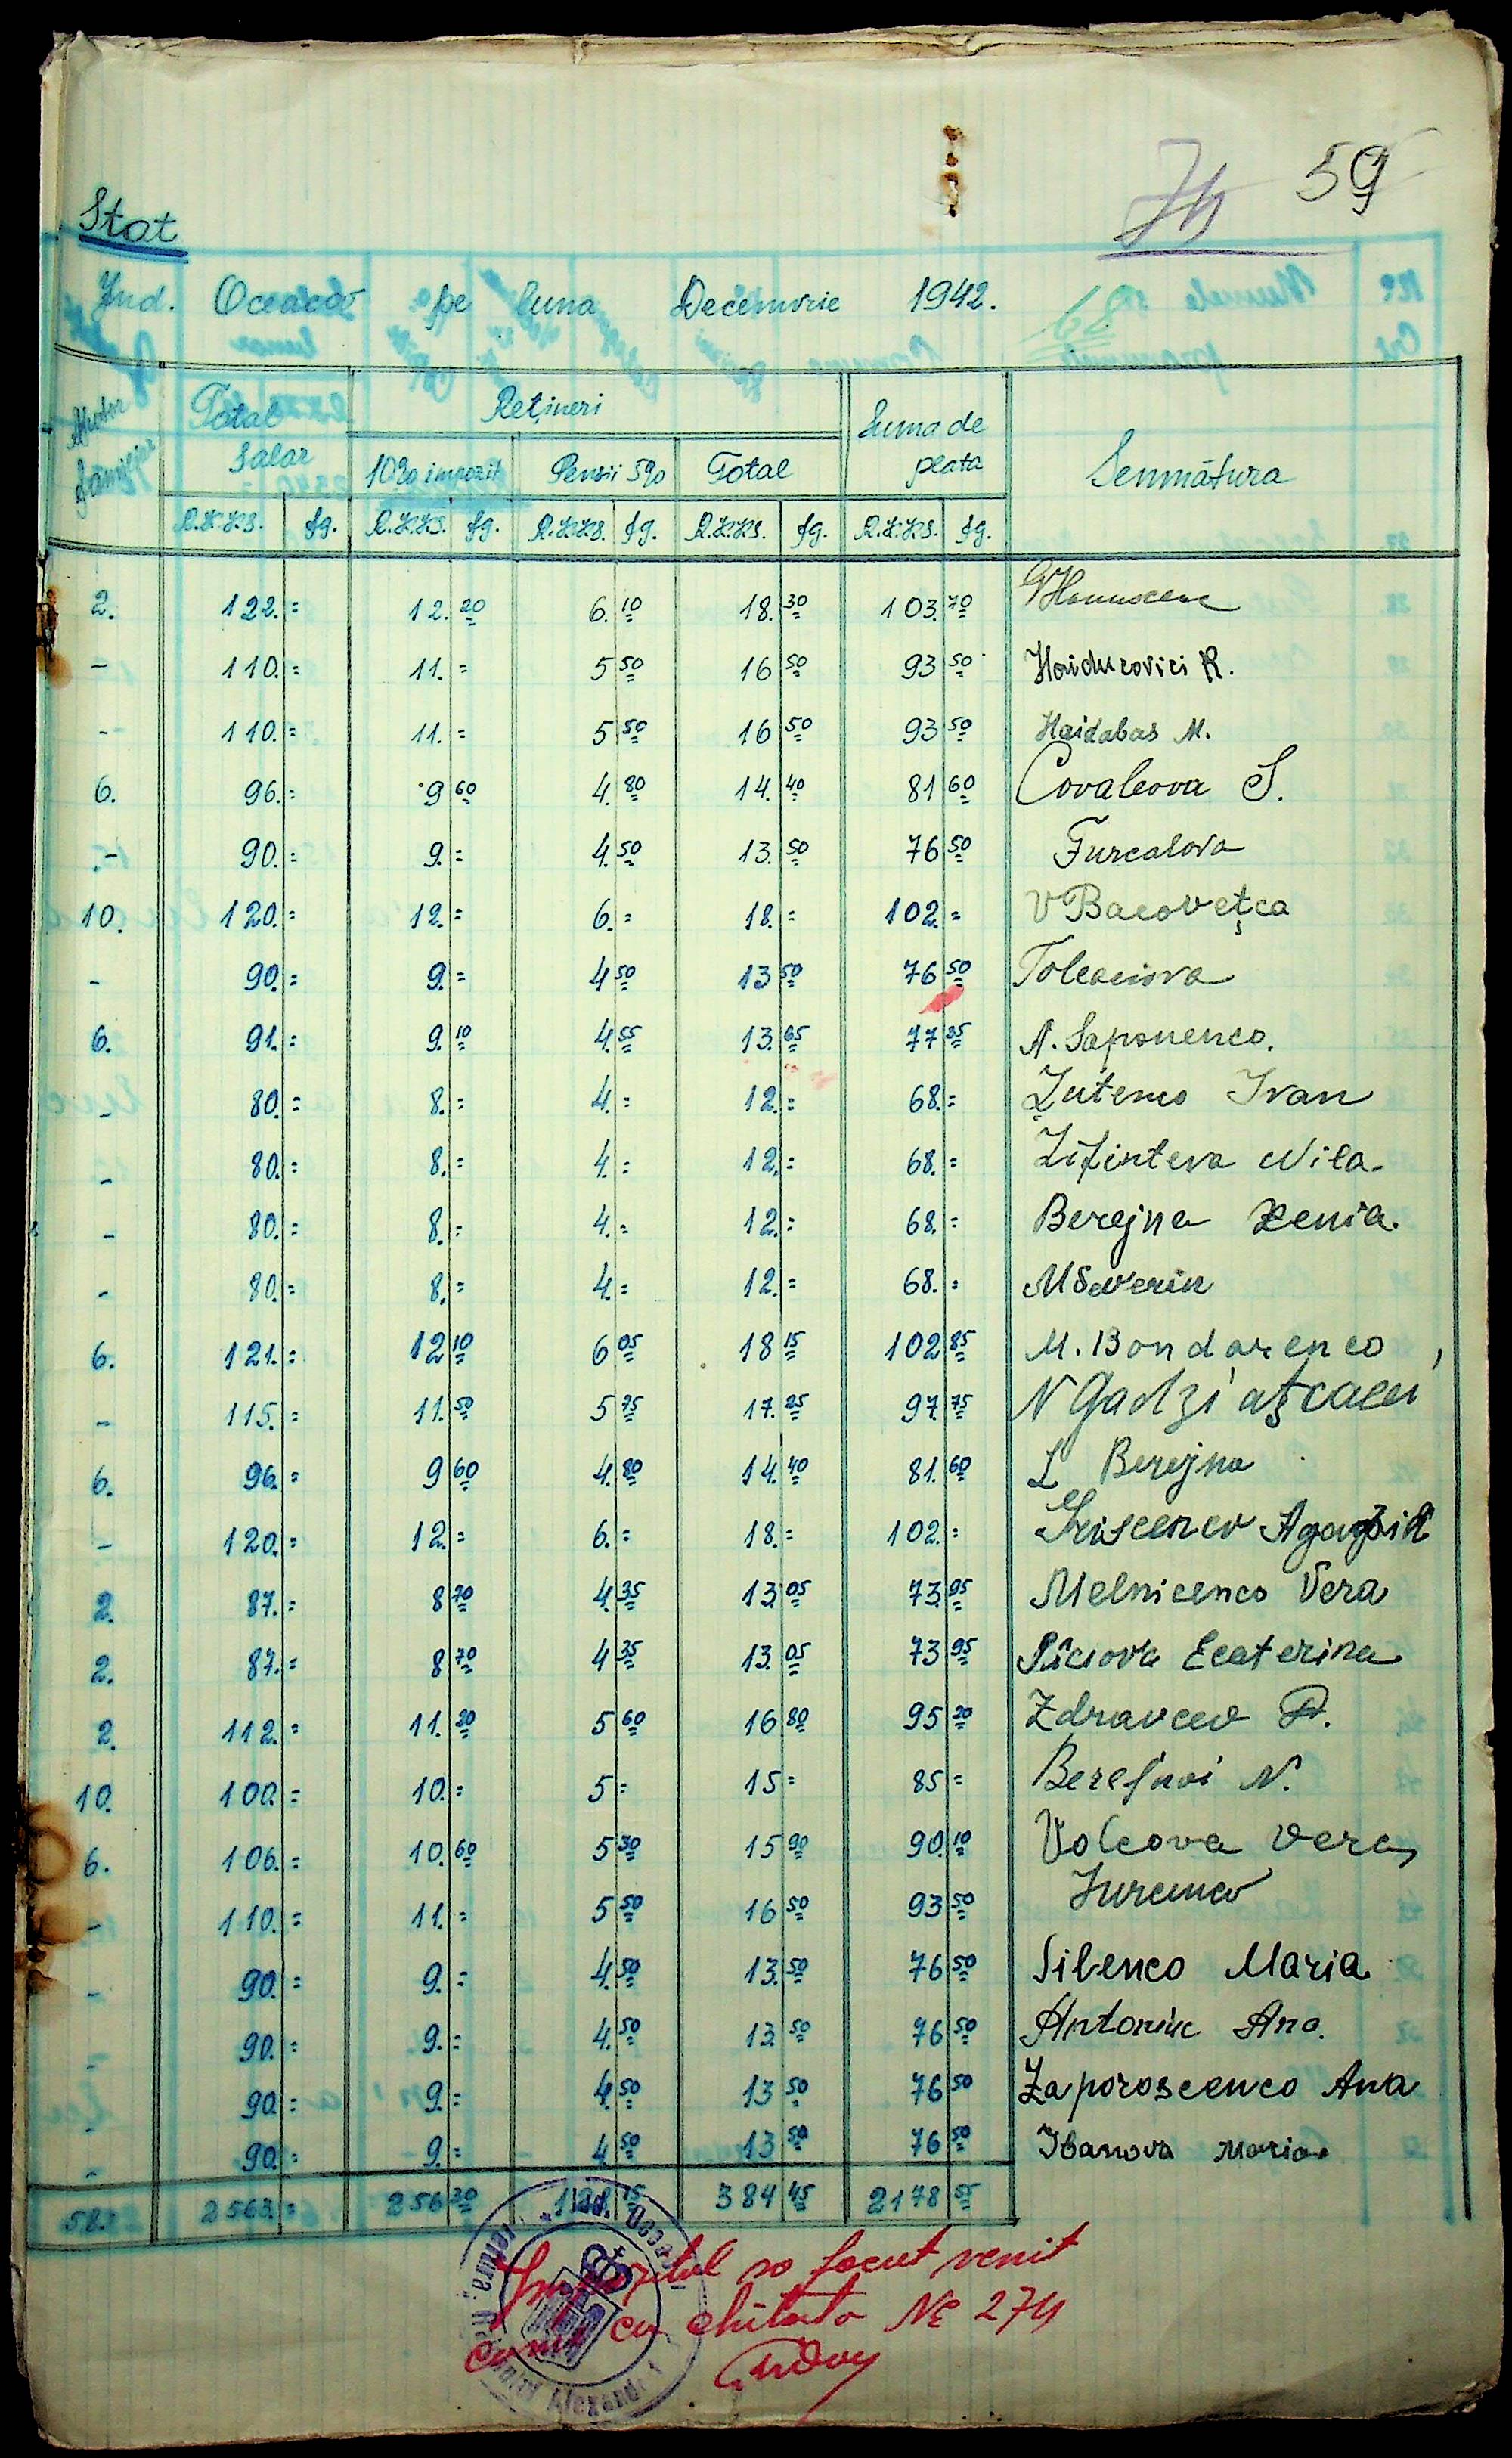 59
Stat
Jud. Oceacov pe luna Decemvrie 1942.
Ajutor familiar Total Salar Rețineri Suma de plata Semnătura
10% impozit Pensii 5% Total
R.K.K.S. fg. R.K.K.S. fg. R.K.K.S. fg. R.K.K.S. fg. R.K.K.S. fg.
2. 122.= 12.20 6.10 18.30 103.70
- 110.= 11.= 5 50 16 50 93 50 Haiducovici R.
- 110.= 11.= 5 50 16 50 93 50 Haidabas M.
6. 96.= 9 60 4.80 14.40 81 60 Covaleova S.
- 90.= 9.= 4.50 13.50 76 50 Furcalova
10. 120.= 12.= 6.= 18.= 102.= V Bacovețca
- 90.= 9.= 4 50 13 50 76 50 Tolcaciova
6. 91.= 9.10 4.55 13.65 77 35 A. Saponenco.
- 80.= 8.= 4.= 12.= 68.= Ivan
- 80.= 8.= 4.= 12.= 68.= Nila.
- 80.= 8.= 4.= 12.= 68.= Berejna Xenia.
- 80.= 8.= 4.= 12.= 68.= M Severin
6. 121.= 12 10 6 05 18 15 102 85 M. Bondarenco
- 115.= 11.50 5 75 17.25 97.75 N Gadzi
6. 96.= 9 60 4.80 14.40 81.60 L Berejna
- 120.= 12.= 6.= 18.= 102.=
2. 87.= 8 70 4.35 13.05 73.95 Melnicenco Vera
2. 87.= 8 70 4 35 13.05 73 95 Ecaterina
2. 112.= 11.20 5 60 16 80 95 20 Zdravcev P.
10. 100.= 10.= 5= 15= 85= Berejnoi N.
6. 106.= 10.60 5 30 15 90 90.10 Volcova Vera
- 110.= 11.= 5 50 16 50 93 50
- 90.= 9.= 4.50 13.50 76 50 Silenco Maria
- 90.= 9.= 4.50 13.50 76 50 Antoniuc Ana.
- 90.= 9.= 4.50 13 50 76 50 Zaporoscenco Ana
- 90.= 9.= 4 50 13 50 76 50 Ibanova Maria
58. 2563.= 256 30 128.15 384 45 2178 55
Impozitul so facut venit
cu chitata No 274